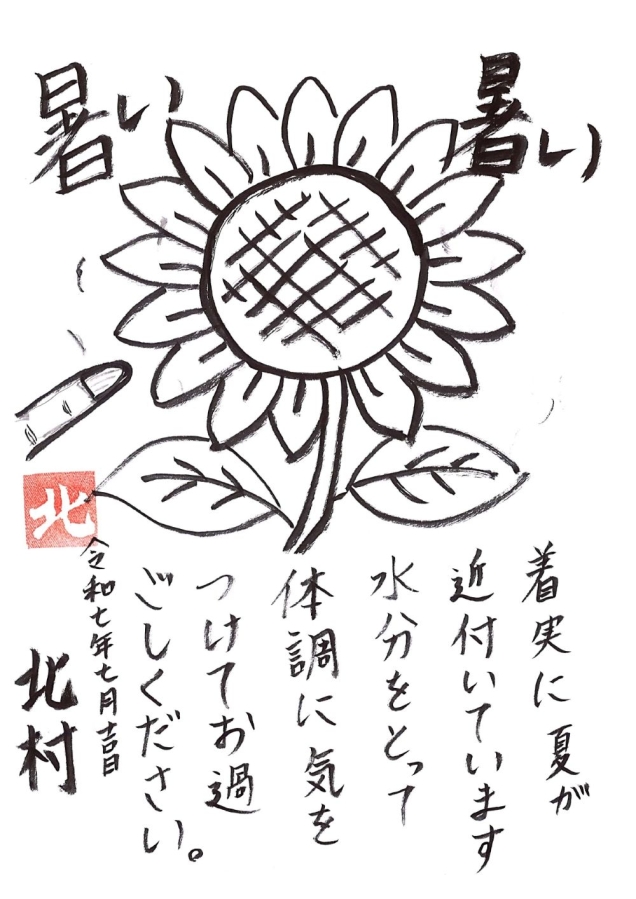 暑い
暑い
着実に夏が
近付いています
水分をとって
体調に気を
つけてお過
ごしください。
令和七年七月吉日
北村
北